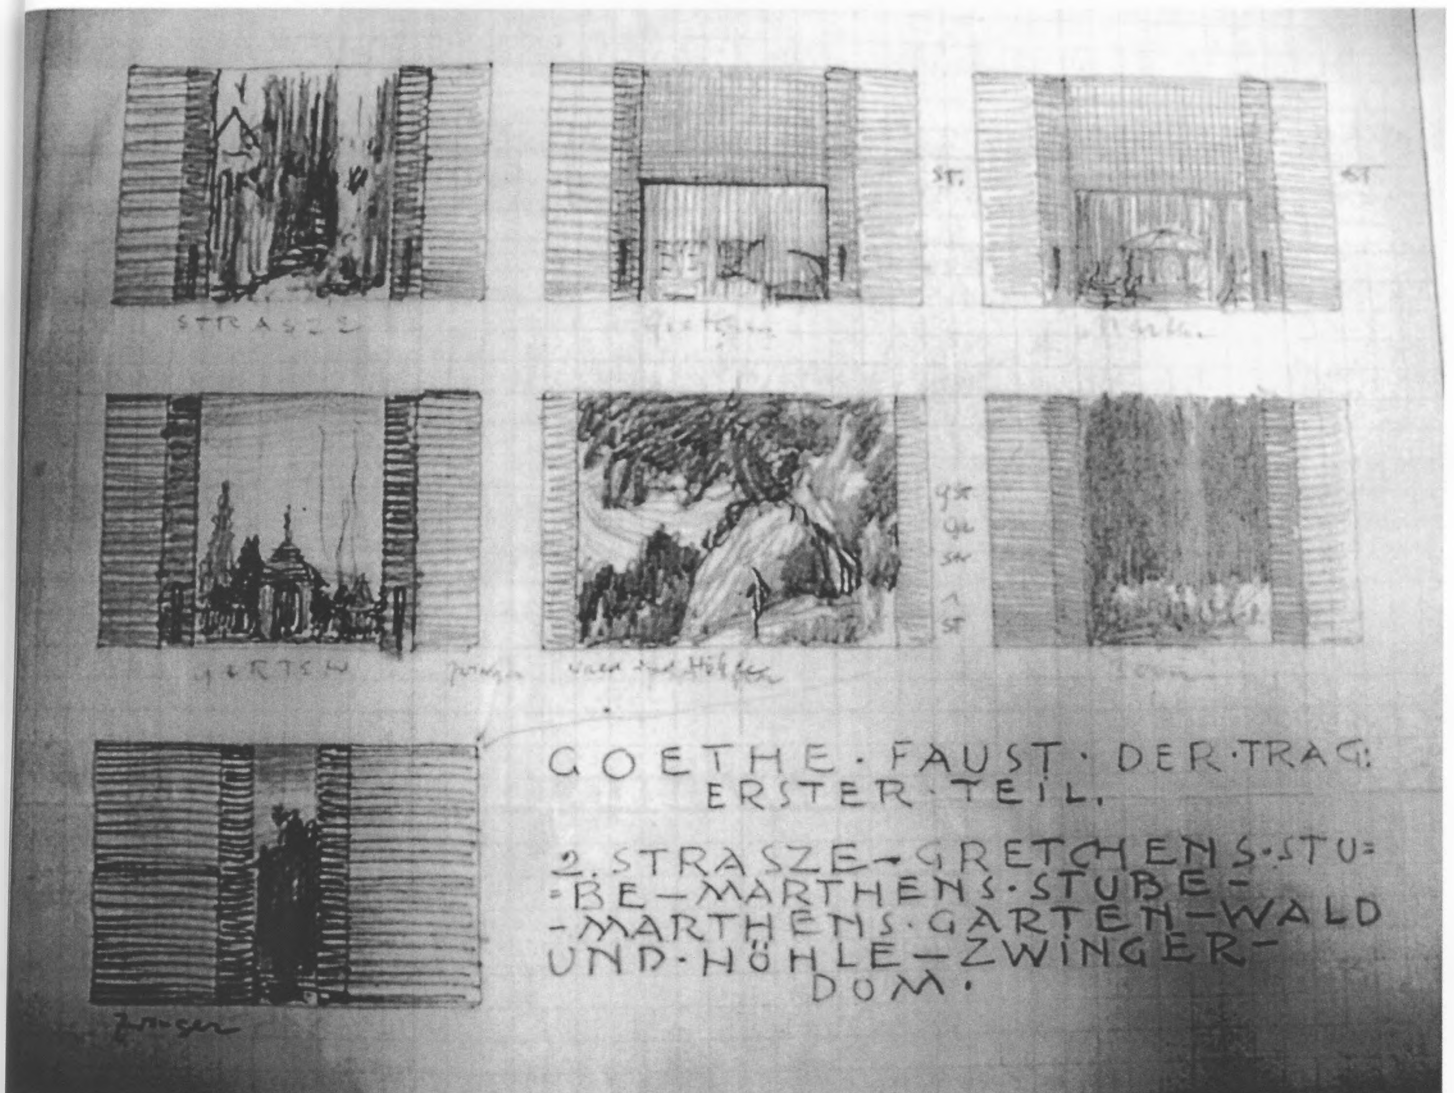 STRASZE
Gretchen
Marthe
ST.
ST
GARTEN
Zwinger
Wald und Höhle
Dom
st
Zwinger
GOETHE · FAUST · DER · TRAG:
ERSTER · TEIL.
2. STRASZE – GRETCHENS · STU=
=BE – MARTHENS · STUBE –
– MARTHENS · GARTEN – WALD
UND · HÖHLE – ZWINGER –
DOM ·